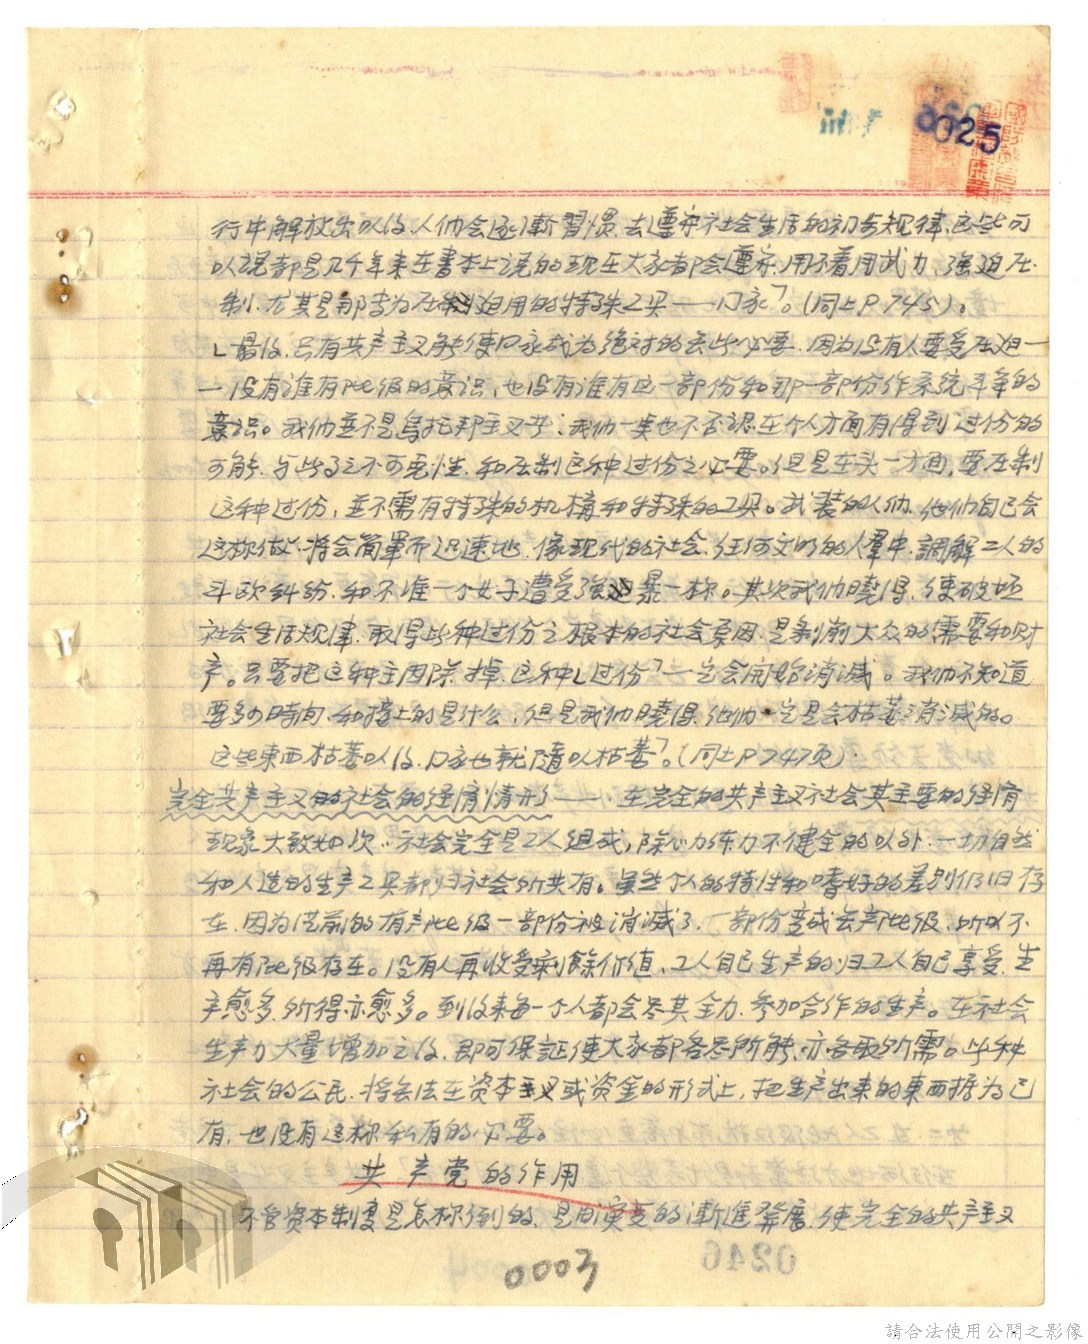 025
行中解放出以后、人们会逐渐習慣、去遵守社会生活的初步规律、这些可
以说都是几千年来在書本上说的现在大家都会遵守、用不着用武力、强迫压
制、尤其是那专为压迫用的特殊工具——囗家⌉。(同上P.745)。
⌊最后、只有共产主义能使囗家成为绝对的无此必要、因为没有人要受压迫—
—没有谁有阶级的意识、也没有谁有这一部份和那一部份作系統斗争的
意识。我们並不是烏托邦主义者；我们一点也不否認、在个人方面有得到过份的
可能、与此了之不可免性、和压制这种过份之必要。但是在头一方面、要压制
这种过份，並不需有特殊的机構和特殊的工具。武装的人们、他们自己会
这样做、将会简單而迅速地、像现代的社会、任何文明的人羣中、調解二人的
斗欧纠纷、和不准一个女子遭受强暴一样。其次我们曉得、使破坏
社会生活规律、取得此种过份之根本的社会原因、是剥削大众的需要和财
产。只要把这种主因除掉、这种⌊过份⌉一定会開始消滅。我们不知道
要多少時间、和接上的是什么、但是我们曉得、他们一定是会枯萎消滅的。
这些東西枯萎以后、囗家也就隨以枯萎⌉。(同上P747页)
完全共产主义的社会的经濟情形——、在完全的共产主义社会其主要的经濟
现象大致如次：社会完全是工人组成，除心力体力不健全的以外、一切自然
和人造的生产工具都归社会所共有。虽然个人的特性和嗜好的差别仍旧存
在、因为從前的有产阶级一部份被消滅了、一部份变成无产阶级、所以不
再有阶级存在。没有人再收受剩餘价值、工人自己生产的归工人自己享受、生
产愈多、所得亦愈多。到后来每一个人都会尽其全力、参加合作的生产。在社会
生产力大量增加之后、即可保証使大家都各尽所能、亦各取所需。此种
社会的公民、将无法在资本主义或资金的形式上，把生产出来的東西据为己
有，也没有这样私有的必要。
共产党的作用
不管资本制度是怎样倒的、是由演变的漸進發展、使完全的共产主义
0246
0003
請合法使用公開之影像